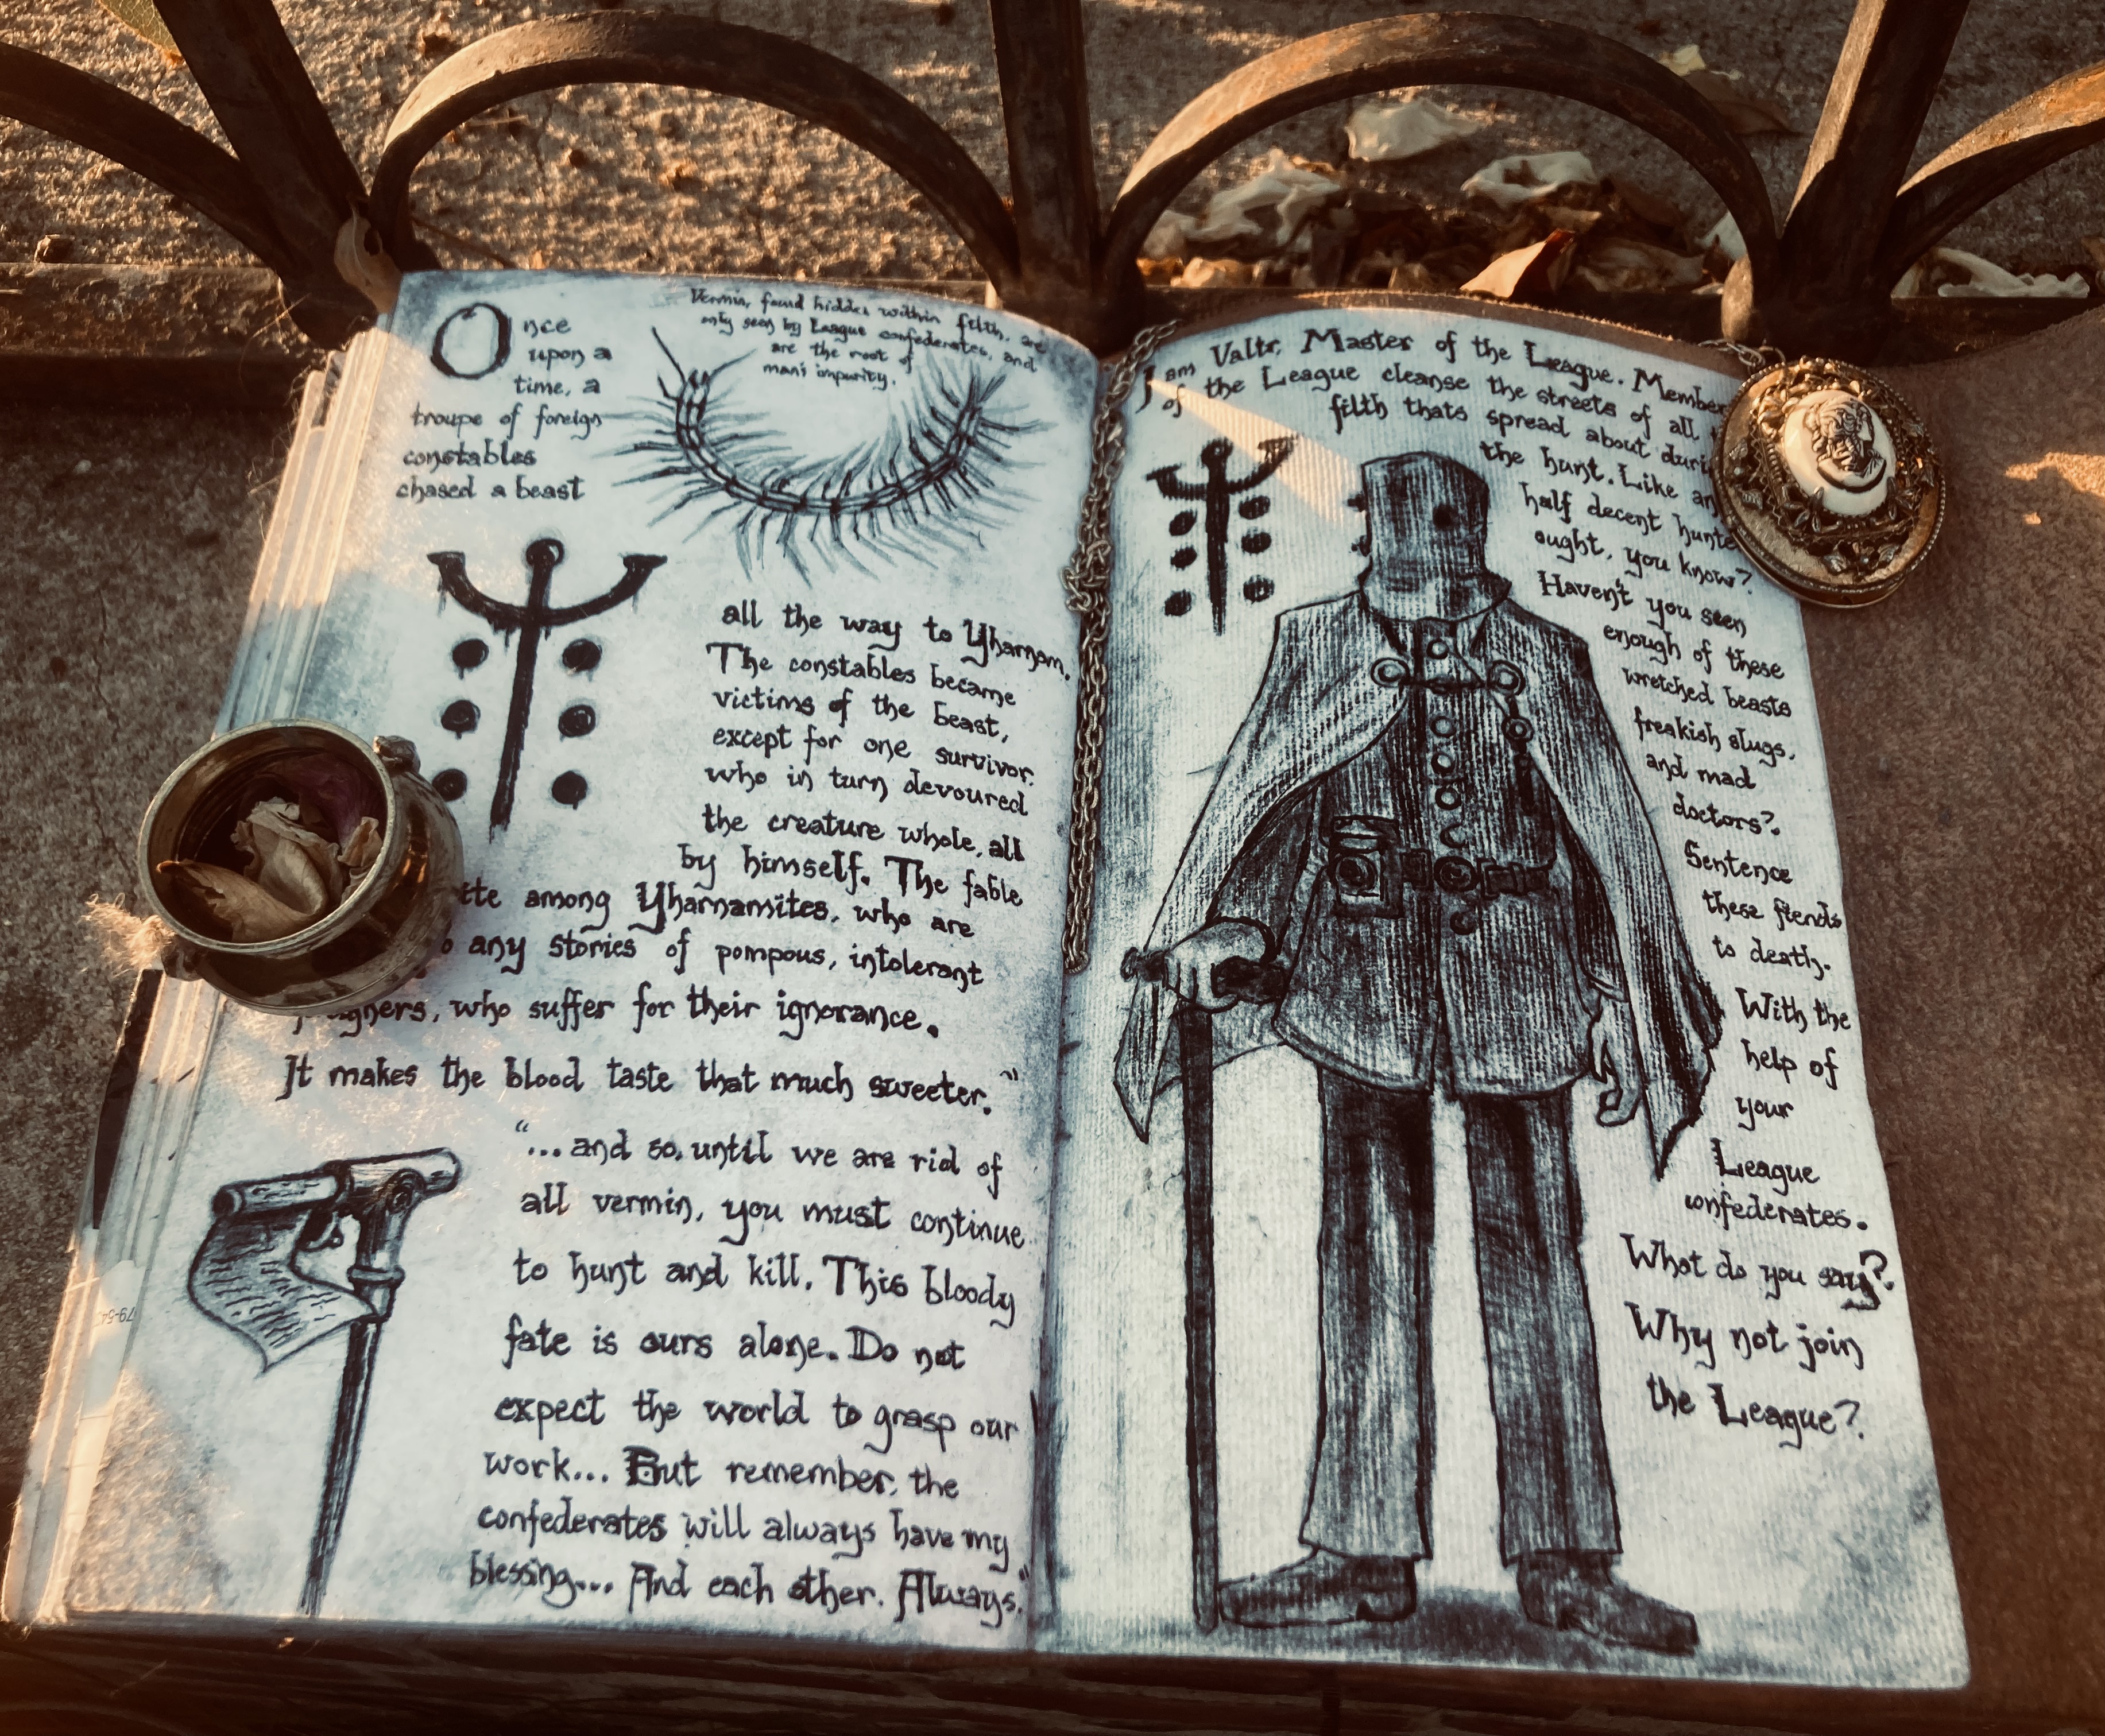 Once
upon a
time, a
troupe of foreign
constables
chased a beast
Vermin, found hidden within filth, are
only seen by League confederates, and
are the root of
mans impurity.
all the way to Yharnam.
The constables became
victims of the beast,
except for one survivor.
who in turn devoured
the creature whole, all
by himself. The fable
among Yharnamites, who are
any stories of pompous, intolerant
who suffer for their ignorance.
It makes the blood taste that much sweeter."
"...and so, until we are rid of
all vermin, you must continue
to hunt and kill. This bloody
fate is ours alone. Do not
expect the world to grasp our
work... But remember, the
confederates will always have my
blessing... And each other. Always."
I am Valtr, Master of the League. Member
of the League cleanse the streets of all
filth thats spread about
the hunt. Like
half decent
ought, you know?
Haven't you seen
enough of these
wretched beasts
freakish slugs,
and mad
doctors?
Sentence
these fiends
to death.
With the
help of
your
League
confederates.
What do you say?
Why not join
the League?
79-54